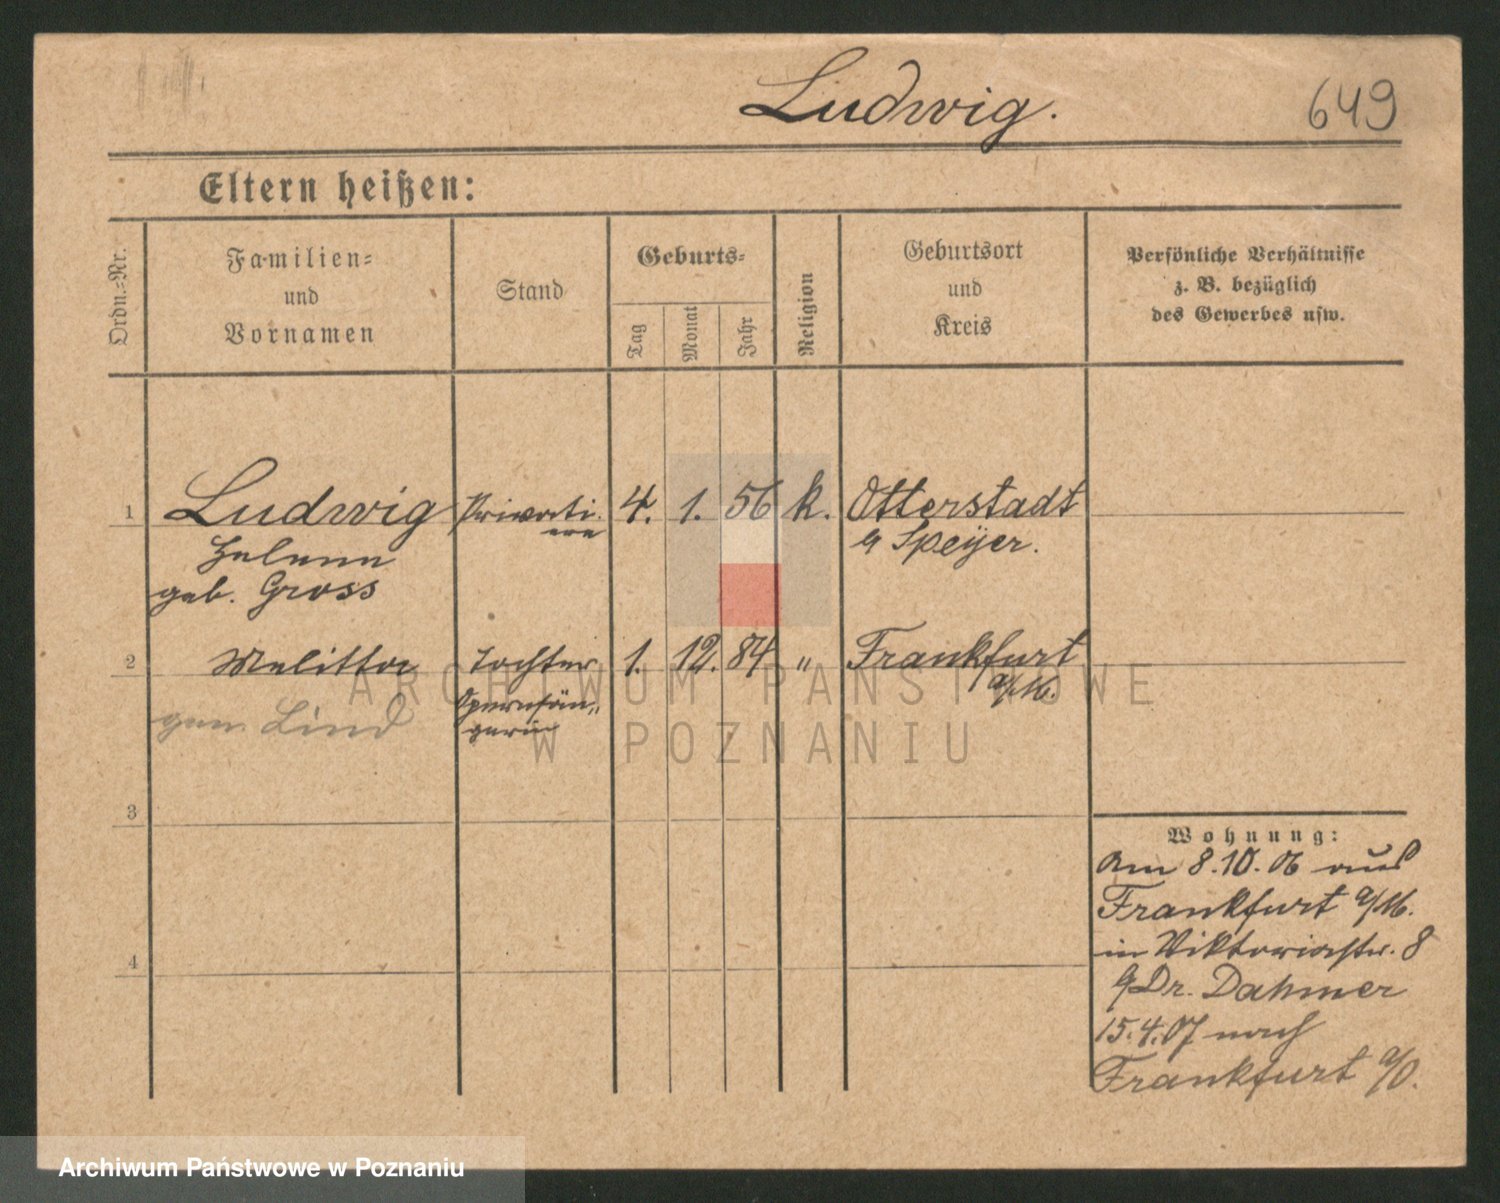 Ludwig.
649
Eltern heißen:
Ordn.=Nr.
Familien=
und
Vornamen
Stand
Geburts=
Tag
Monat
Jahr
Religion
Geburtsort
und
Kreis
Persönliche Verhältnisse
z. B. bezüglich
des Gewerbes usw.
1 Ludwig Privati- 4. 1. 56 k. Otterstadt
ere Speyer.
Helene
geb. Gross
2 Melitta Tochter 1. 12. 84 " Frankfurt
a/M.
gen. Lind Opernsän-
gerin
3
4
Wohnung:
Am 8.10.06 aus
Frankfurt a/M.
in Viktoriastr. 8
Dr. Dahmer
15.4.07 nach
Frankfurt a/O.
ARCHIWUM PAŃSTWOWE
W POZNANIU
Archiwum Państwowe w Poznaniu